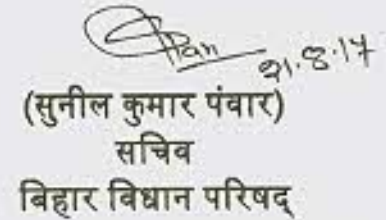 21.8.17
(सुनील कुमार पंवार)
सचिव
बिहार विधान परिषद्